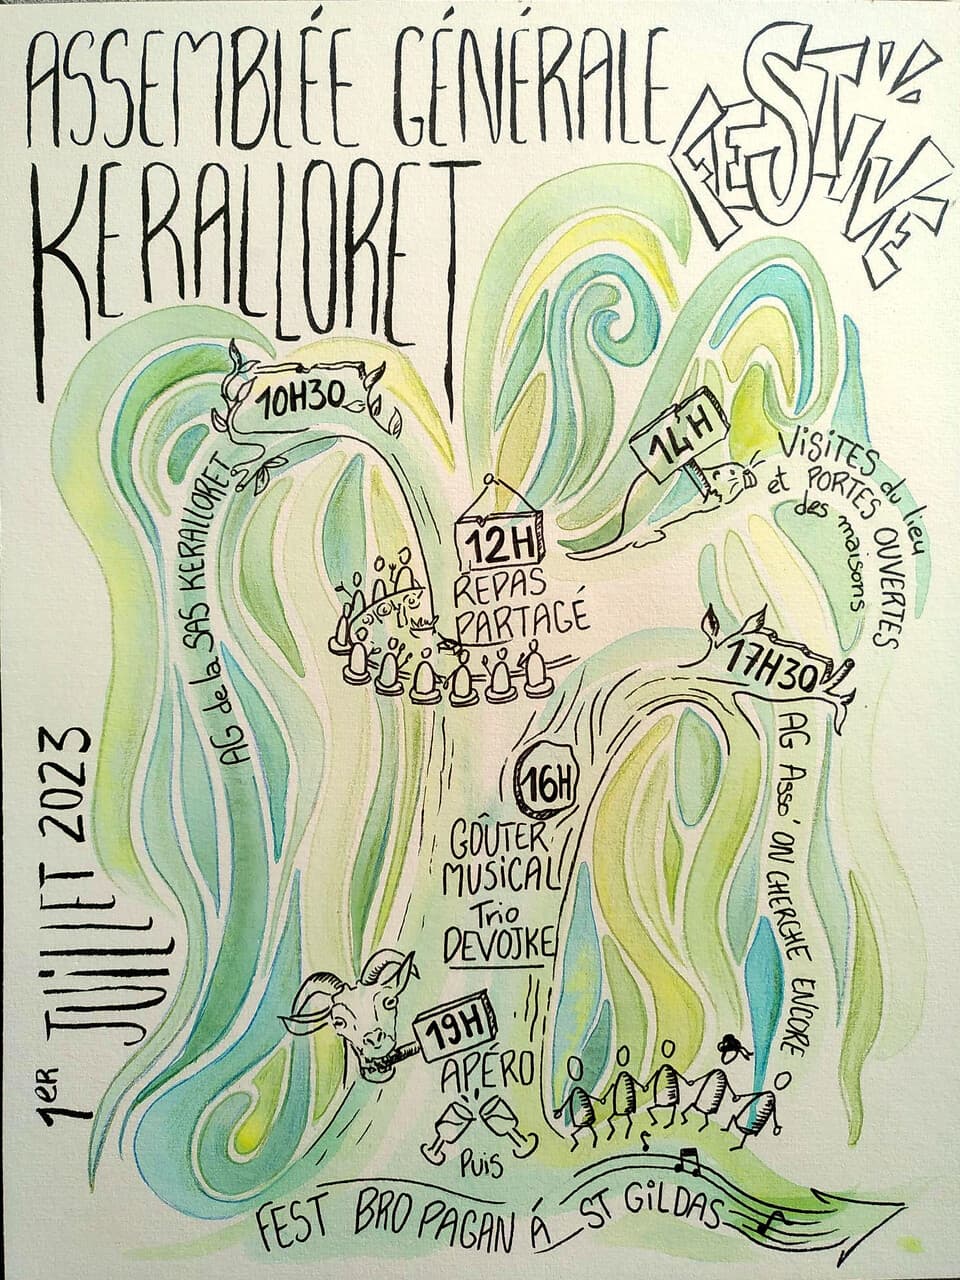 ASSEMBLÉE GÉNÉRALE
FESTIVE
KERALLORET
1ER JUILLET 2023
10H30
AG de la SAS KERALLORET
12H
REPAS
PARTAGÉ
14H
VISITES du lieu
et PORTES OUVERTES
des maisons
16H
GOÛTER
MUSICAL
Trio
DEVOJKE
17H30
AG Asso' ON CHERCHE ENCORE
19H
APÉRO
Puis
FEST BRO PAGAN À ST GILDAS